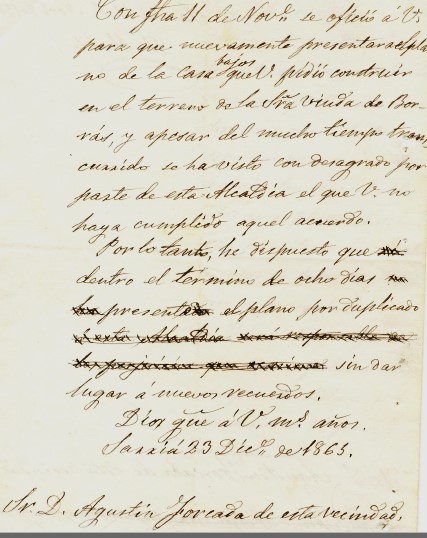 Con fha 11 de Novre. se ofició á V.
para que nuevamente presentara el pla
no de la casa bajos que V. pidió construir
en el terreno de la Sra. viuda de Bor-
rás, y apesar del mucho tiempo trans
cursido se ha visto con desagrado por
parte de esta Alcaldía el que V. no
haya cumplido aquel acuerdo.
Por lo tanto, he dispuesto que
dentro el término de ocho dias
presente el plano por duplicado
á esta Alcaldía será responsable de
los perjuicios que sin dar
lugar á nuevos recuerdos.
Dios gue. á V. ms. años.
Sarriá 23 Dice. de 1865.
Sr. D. Agustin Forcada de esta vecindad.